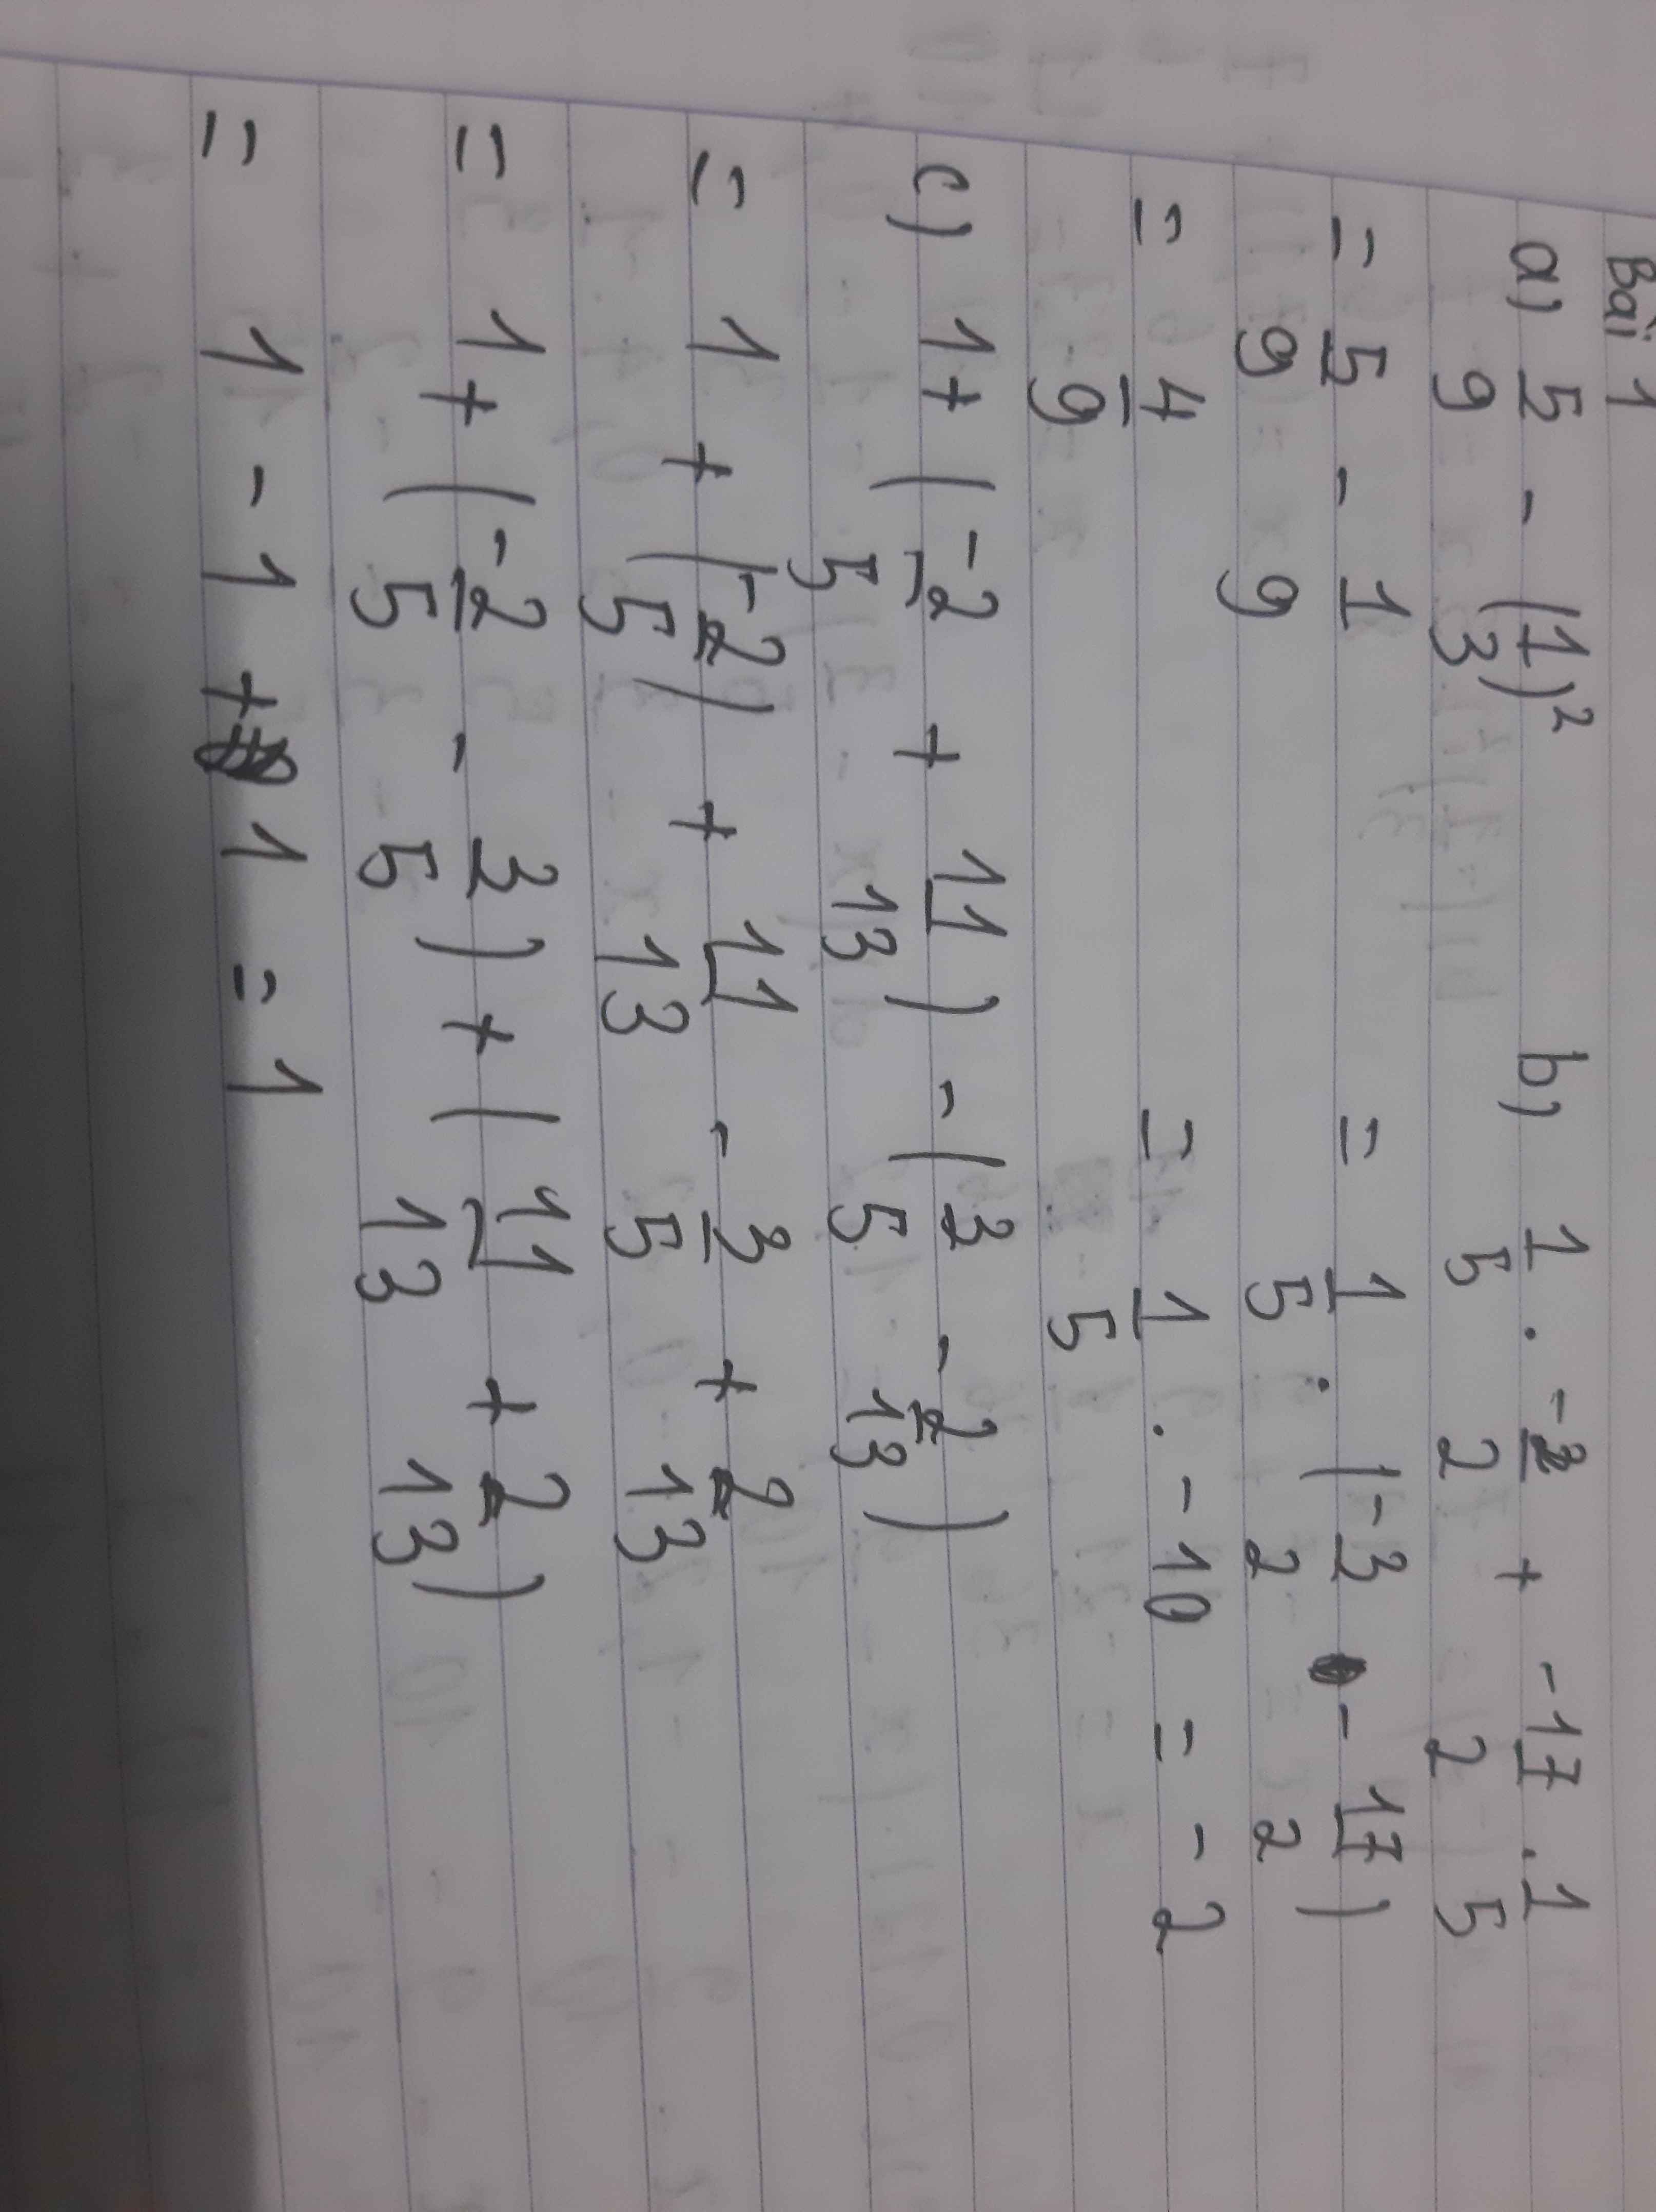 Bài 1
a) 5/9 - (1/3)² b) 1/5 . -3/2 + -17/2 . 1/5
= 5/9 - 1/9 = 1/5 . (-3/2 - 17/2)
= 4/9 = 1/5 . -10 = -2
c) 1 + (-2/5 + 11/13) - (3/5 - 2/13)
= 1 + (-2/5) + 11/13 - 3/5 + 2/13
= 1 + (-2/5 - 3/5) + (11/13 + 2/13)
= 1 - 1 + 1 = 1